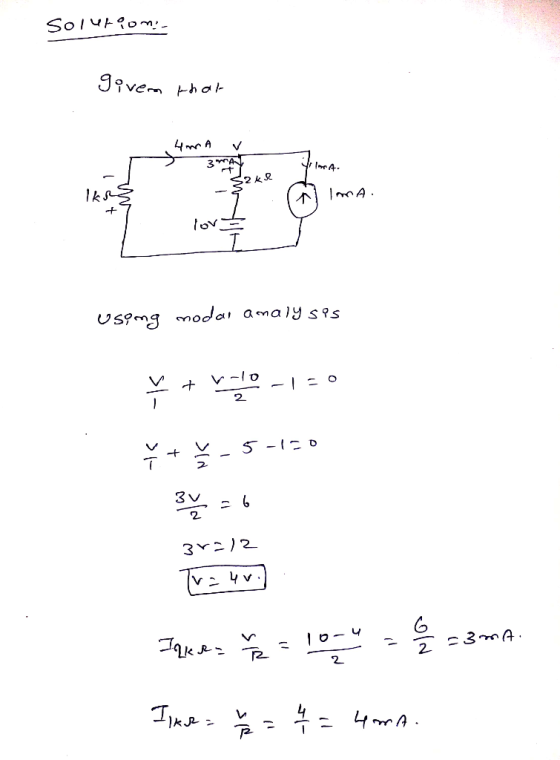 Solution:-
given that
4mA V
3mA + 1mA.
- 2kΩ
1kΩ - 1mA.
+
10V
using nodal analysis
V/1 + V-10/2 - 1 = 0
V/1 + V/2 - 5 - 1 = 0
3V/2 = 6
3V = 12
V = 4V.
I2kΩ = V/R = 10-4/2 = 6/2 = 3mA.
I1kΩ = V/R = 4/1 = 4mA.